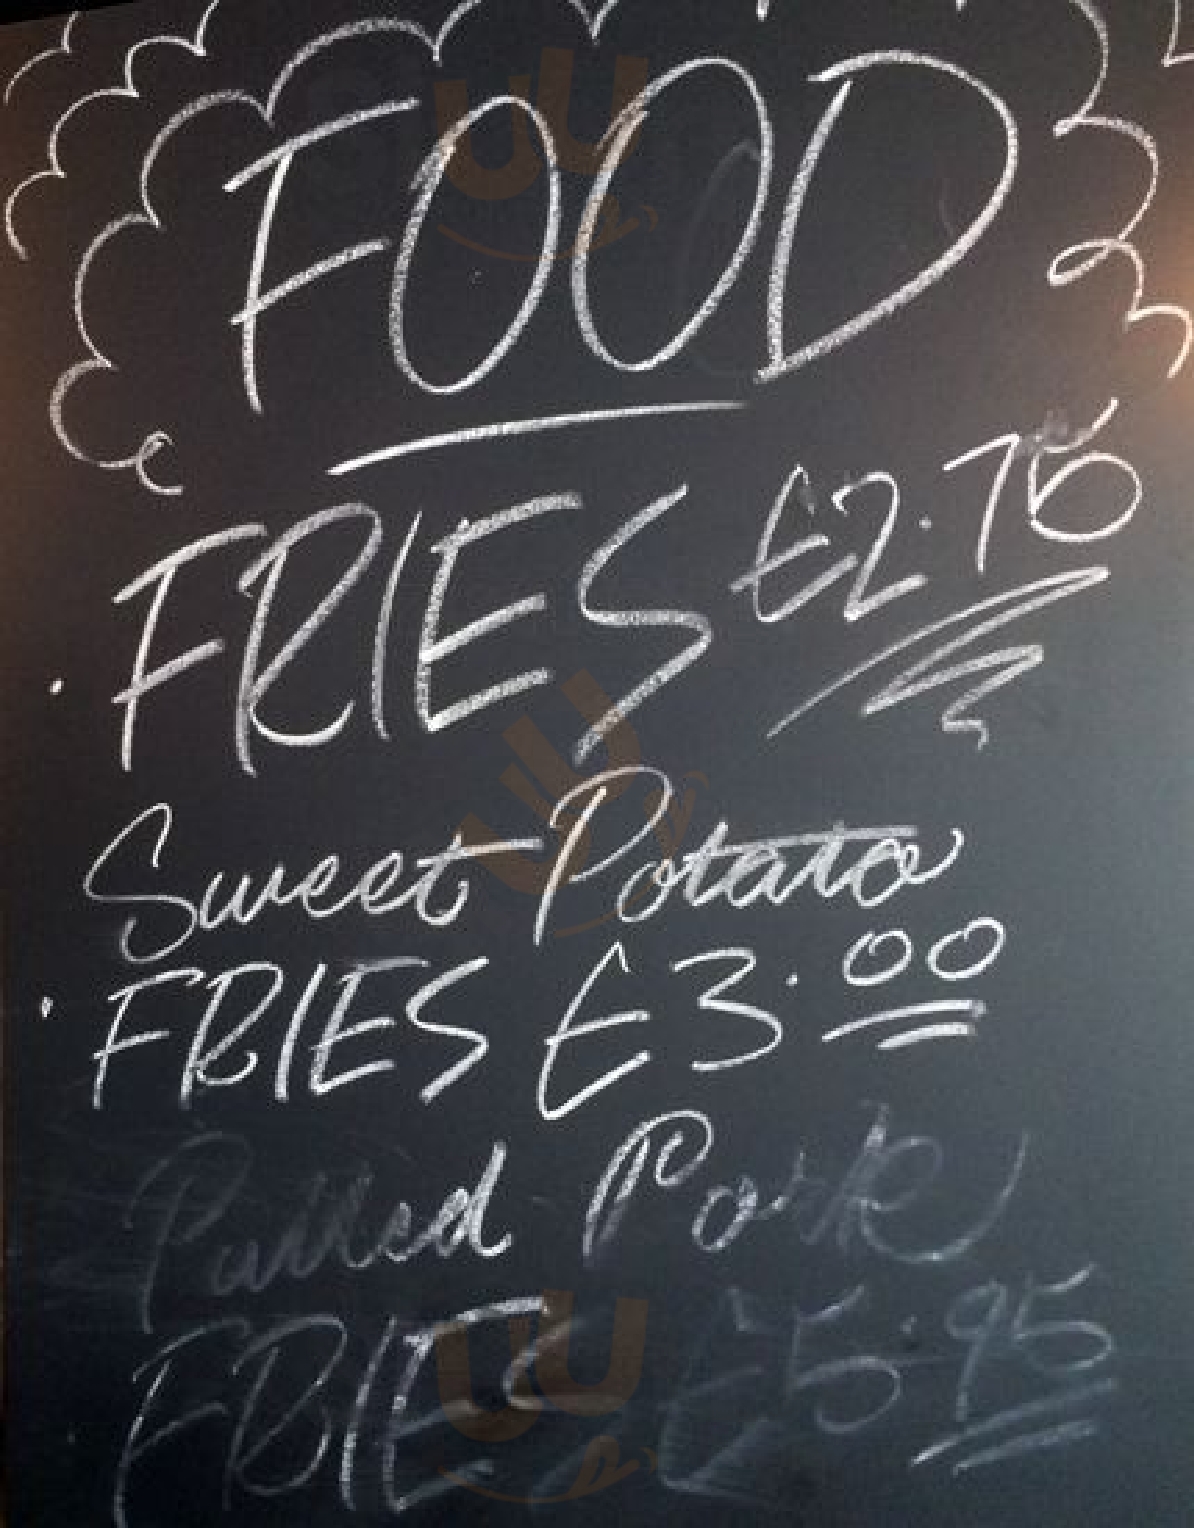 FOOD
FRIES £2.75
Sweet Potato
FRIES £3.00
Pulled Pork
FRIES £5.95